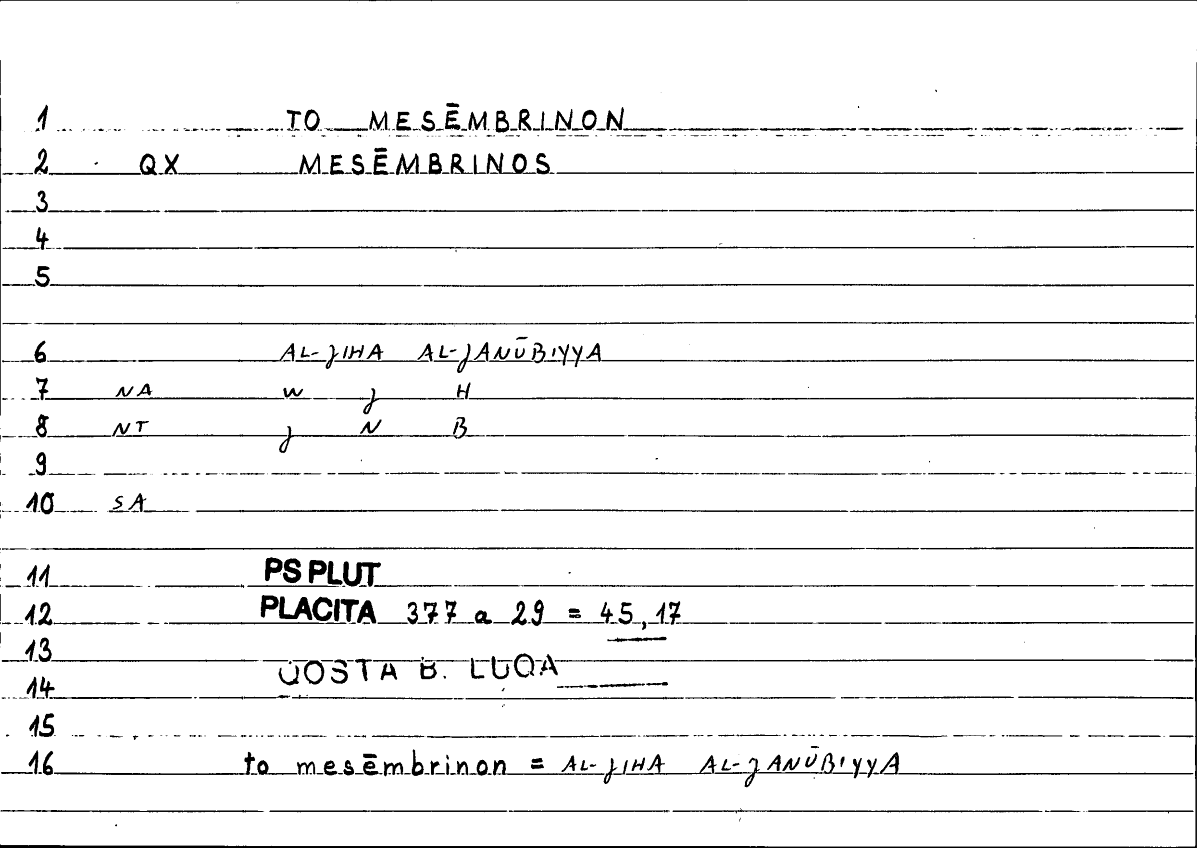 1 TO MESĒMBRINON
2 QX MESĒMBRINOS
3
4
5
6 AL-JIHA AL-JANŪBIYYA
7 NA W J H
8 NT J N B
9
10 SA
11 PS PLUT
12 PLACITA 377 a 29 = 45,17
13
14 QOSTA B. LUQA
15
16 to mesēmbrinon = AL-JIHA AL-JANŪBIYYA